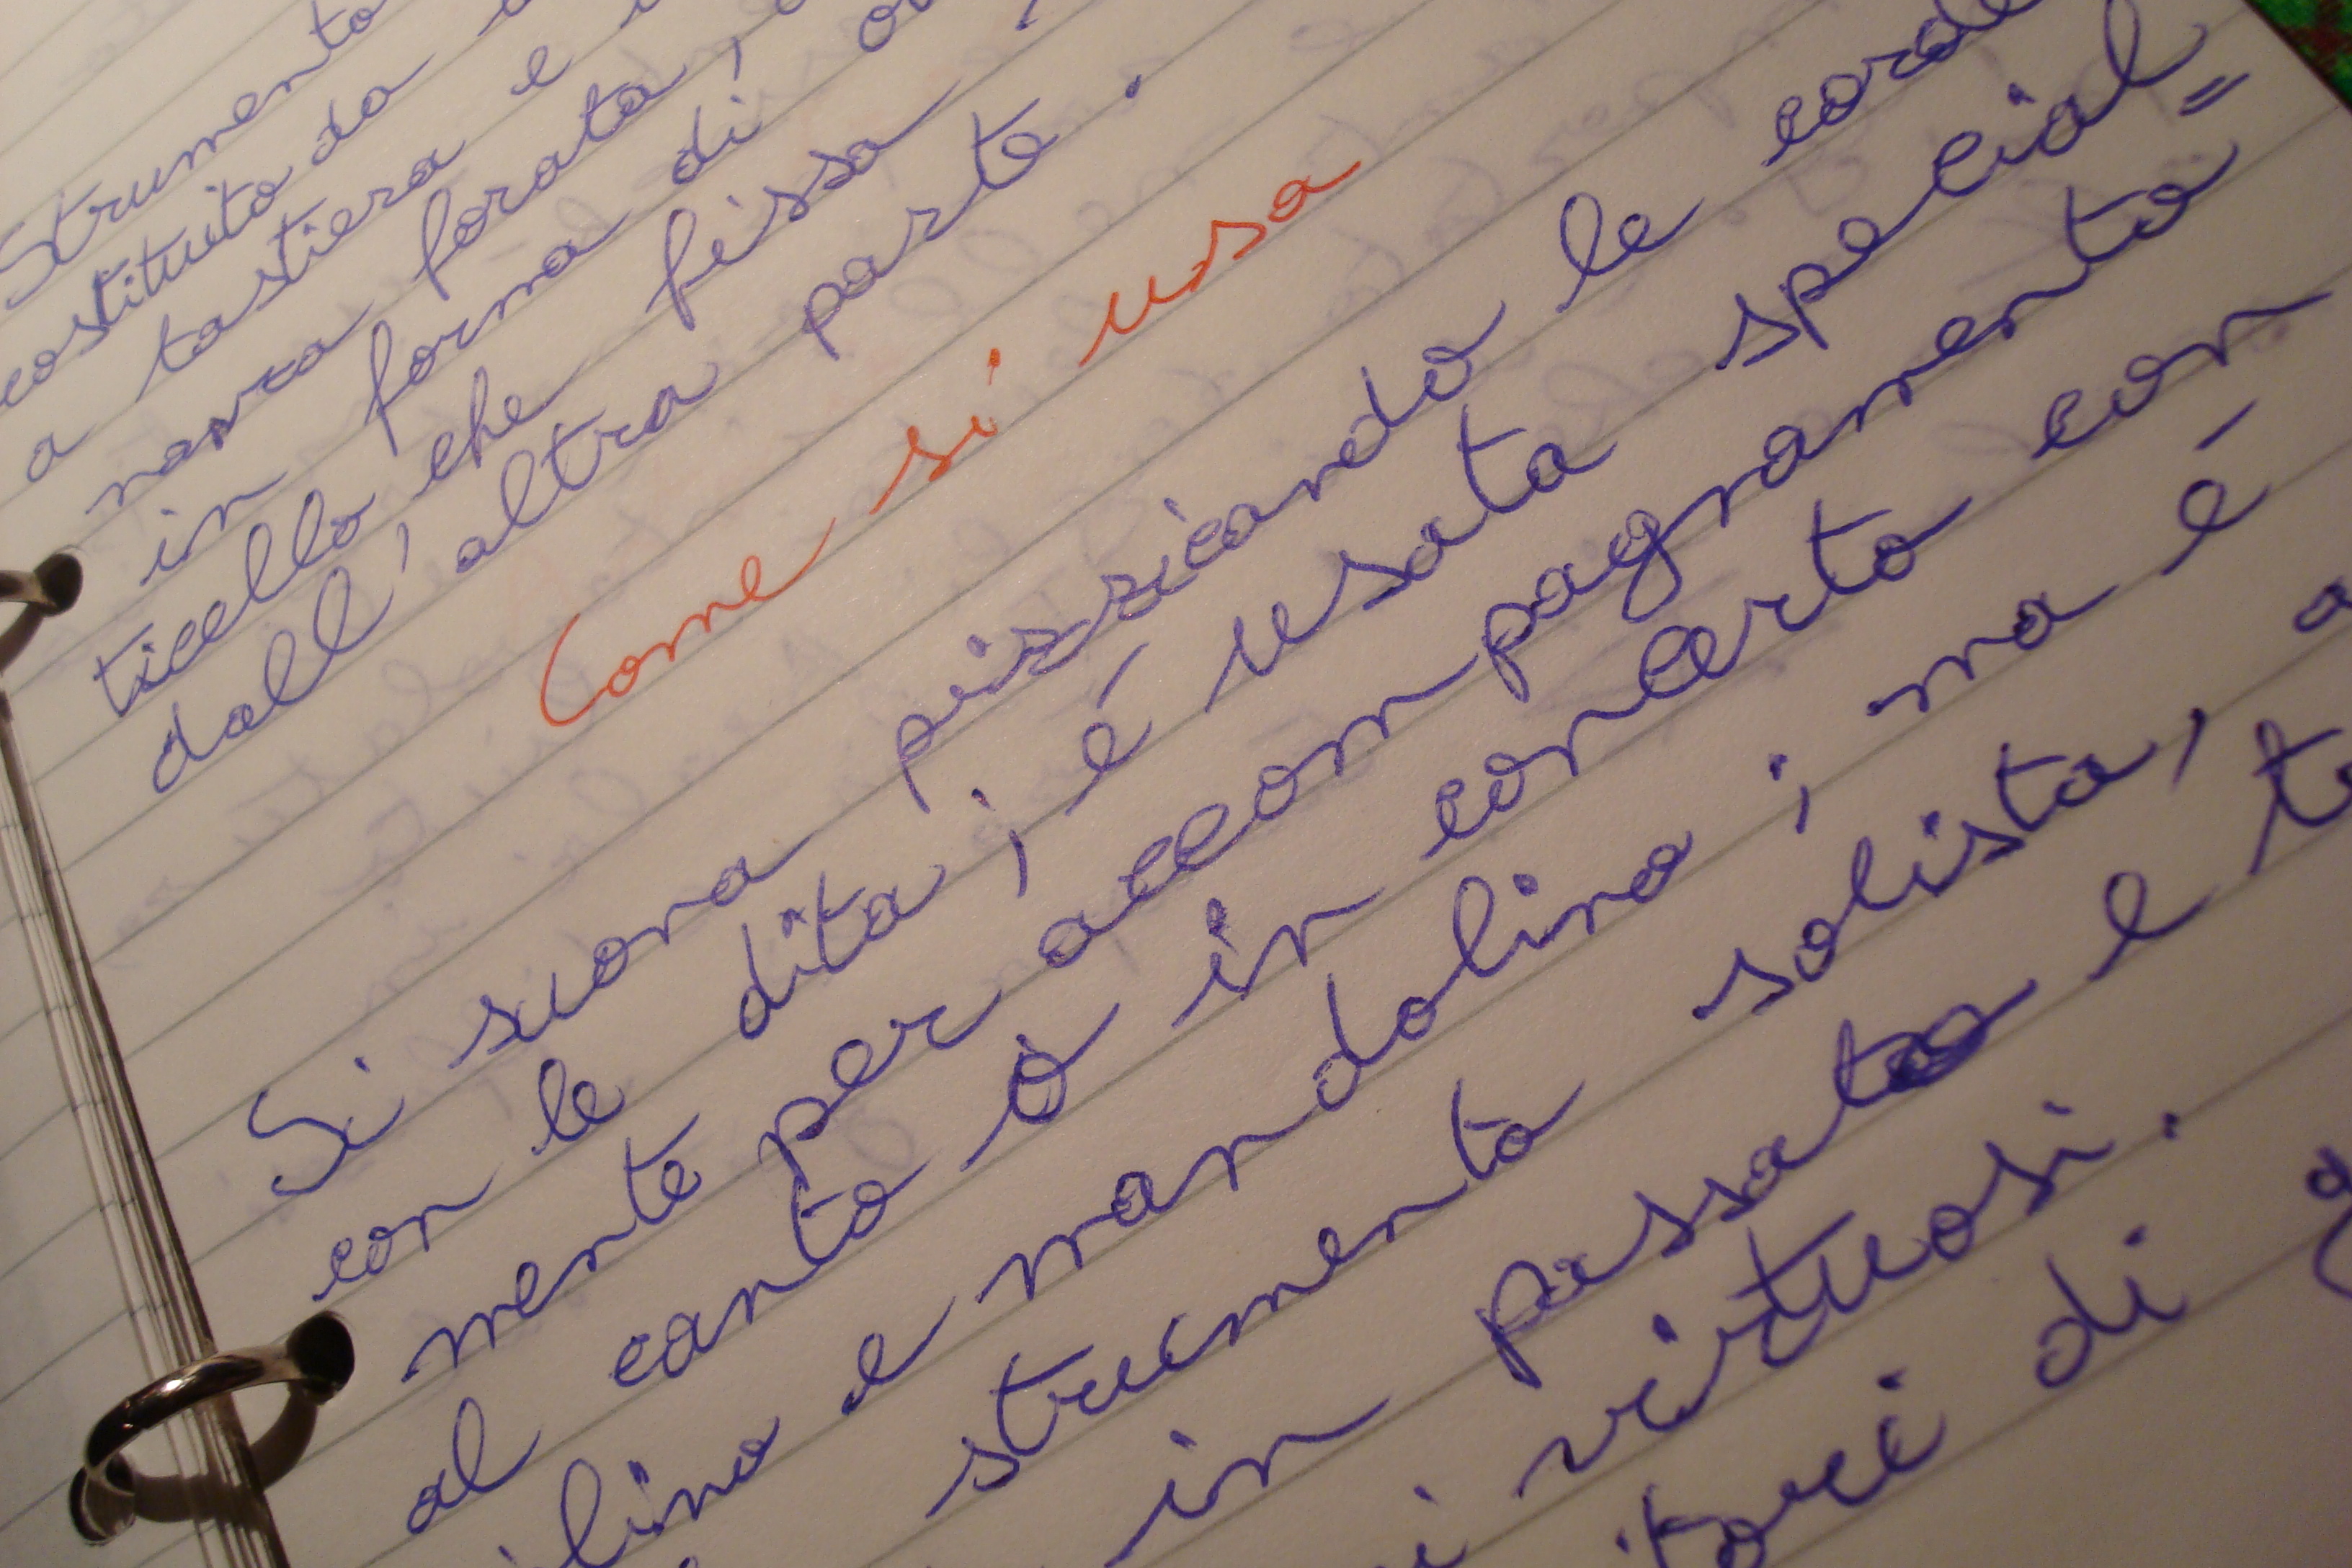 Strumento
costituito da
a tastiera e
forata,
in forma di
ticello che fissa
dall' altra parte.
Come si usa
Si suona pizzicando le corde
con le dita; é usata special=
mente per accompagnamento
al canto o in concerto con
lino e mandolino; ma é
strumento solista,
in passato e
i virtuosi.
di